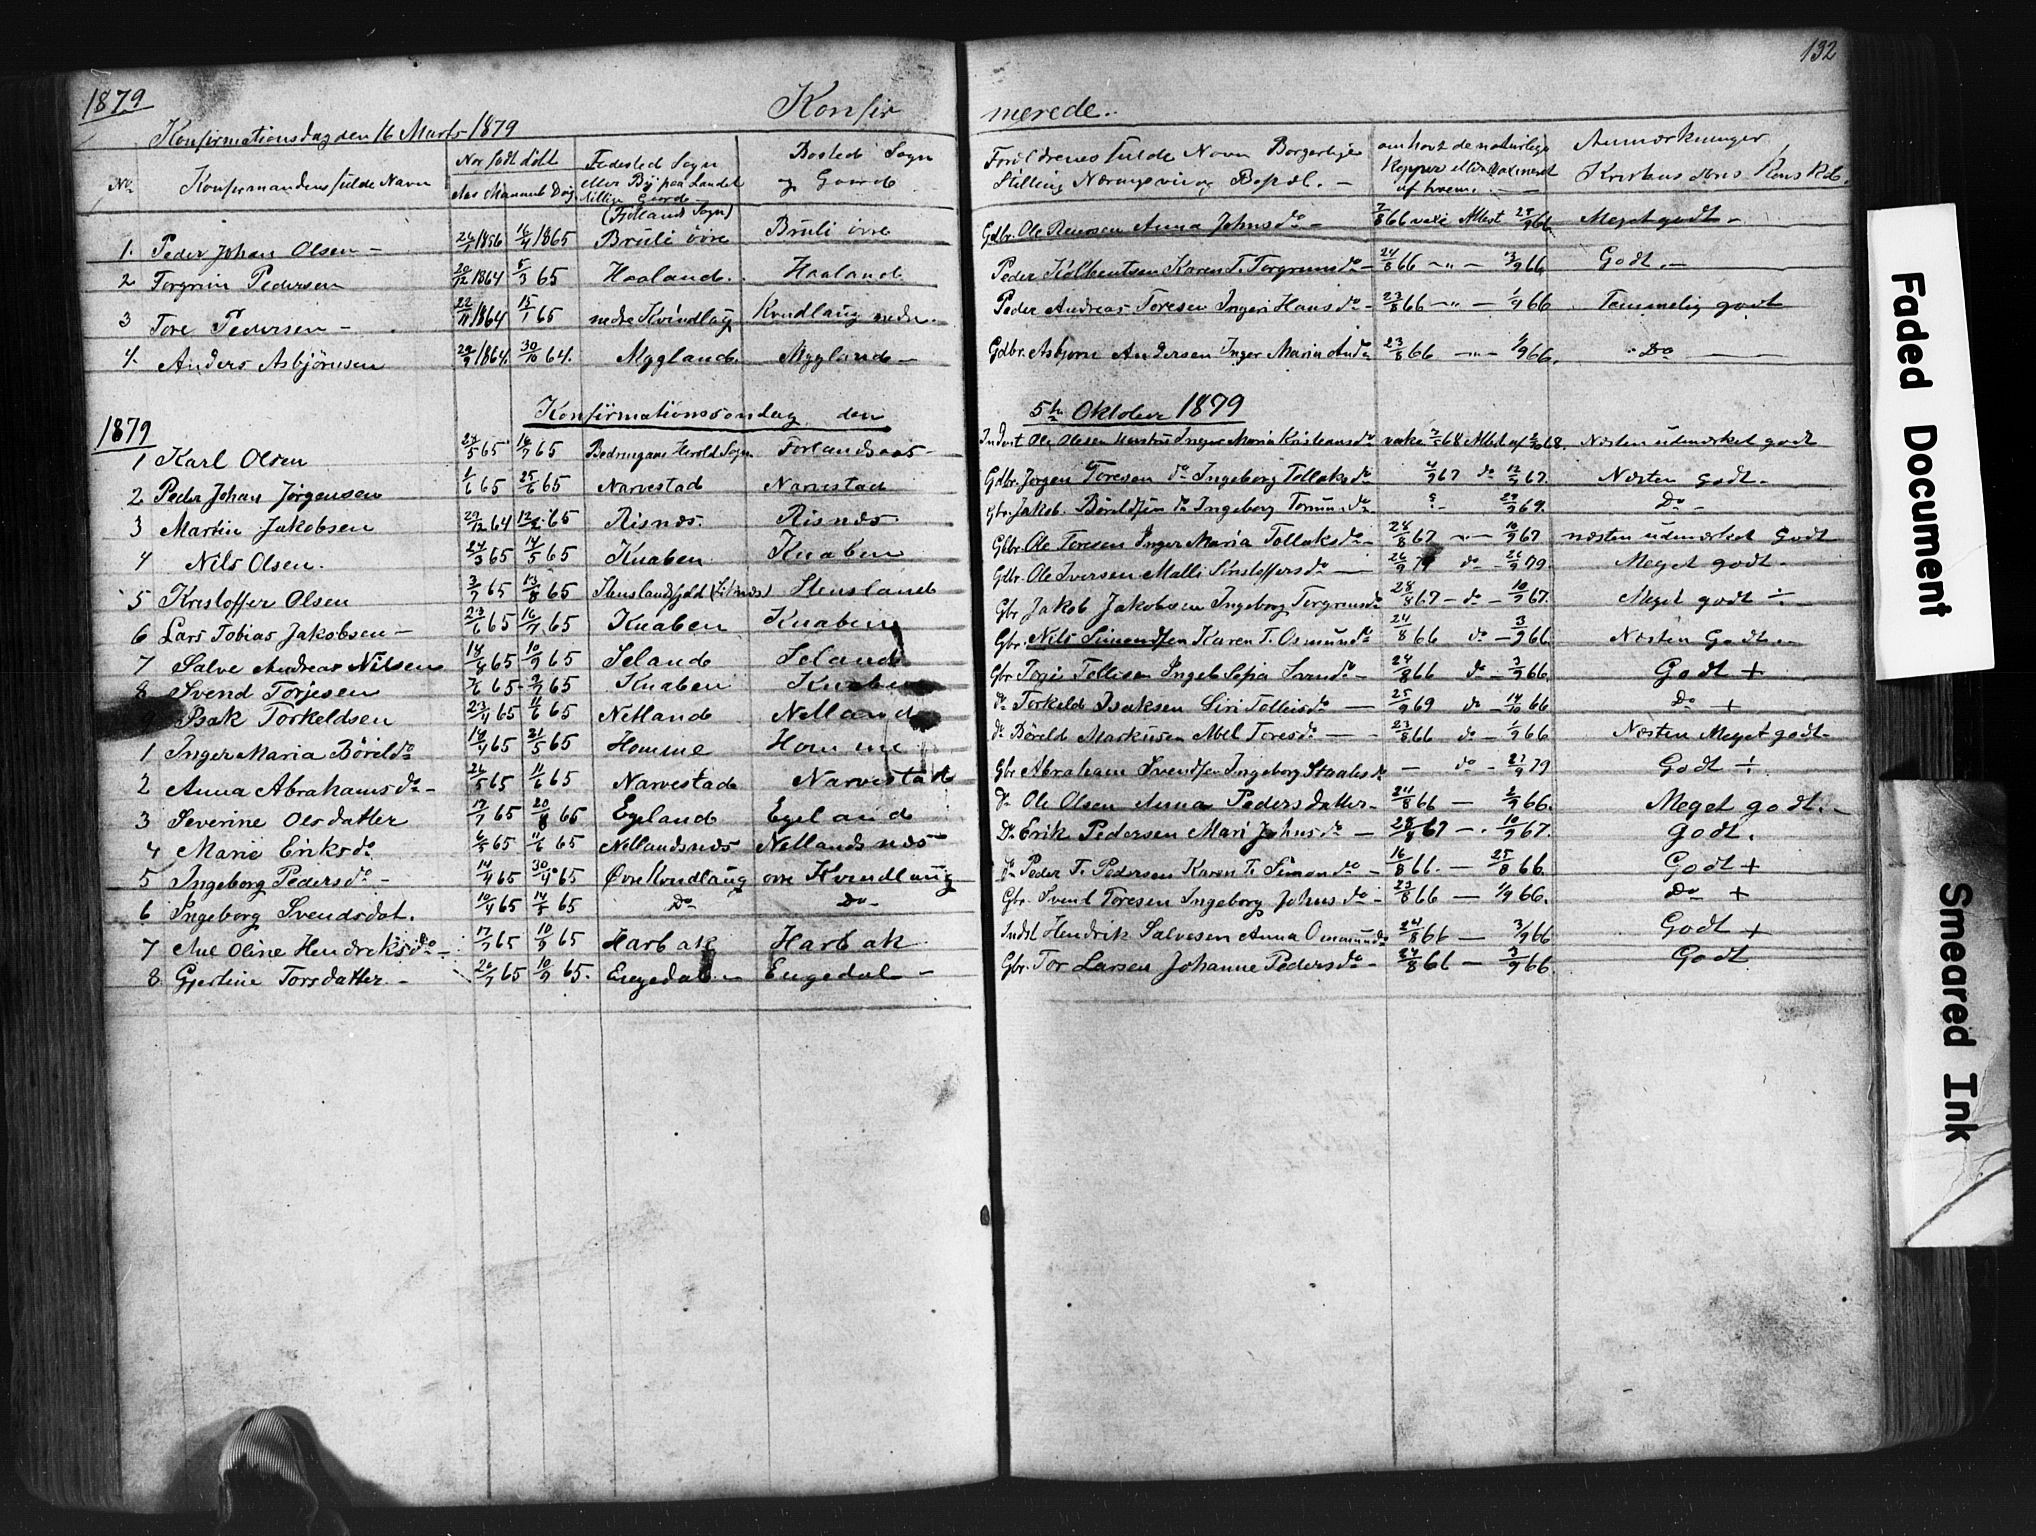 1879
Konfirmationsdag den 16 Marts 1879
Konfir
merede.
132
No
Konfirmandens fulde Navn
Naar født døbt
Aar Maaned Dag
Fødested Sogn
eller By paa Landet
tillige Gaard
(Fjotland Sogn)
Bosted Sogn
og Gaard
Forældrenes fulde Navn Borgerlige
Stilling Næringsvei og Bopæl. —
om havt de naturlige
Kopper eller vaxineret
af hvem. —
Anmærkninger
Kristendoms Kunskab.
1. Peder Johan Olsen — 1865 Bruli övre Bruli övre Gdbr. Ole Anna Johnsdo — 7/8 66 vaxi Attest 66 Meget godt —
2 Torgrim Pedersen 20/12 1864 5/3 65 Haaland. Haaland Peder Karen T. Torgrimsdo — 24/8 66 —"— 66 Godt. —
3 Tore Pedersen — 22/11 1864 15/1 65 nedre Kvindlaug Kvindlaug nedre. Peder Andreas Toresen Ingeri Hansdo — 23/8 66 —"— 1/9 66 Temmelig godt
4. Anders Asbjörnsen 29/9 1864. 30/10 64. Mygland. Mygland — Gdbr. Asbjørn Andersen Inger Maria 23/8 66 —"— 1/9 66. Do —
1879 Konfirmationssöndag den 5te Oktober 1879
1 Karl Olsen 24/5 65 16/7 65 Forlandsaas — Indest Ole Olsen Inger Maria Kristiansdo 68 Attest af 68. Næsten udmærket godt
2 Peder Johan Jørgensen 1/6 65 25/6 65 Narvestad Narvestad Gdbr. Jørgen Toresen do Ingeborg Tollaksdo 67 do 12/9 67. Næsten godt.
3 Martin Jakobsen 29/12 64 65 Risnes. Risnes. Gbr. Jakob Ingeborg ? — 69. Do —
4 Nils Olsen. 24/3 65 14/5 65 Knaben Knaben Gbr. Ole Toresen Inger Maria Tollaksdo — 28/8 67 —"— 10/9 67 næsten udmærket Godt
5 Kristoffer Olsen 3/7 65 13/8 65 Stensland Gdbr. Ole Iversen Malli Kristoffersdo — 26/9 79 do — 26/9 79 Meget godt.
6 Lars Tobias Jakobsen — 23/6 65 16/7 65 Knaben Knaben Gbr Jakob Jakobsen Ingeborg Torgrimsdo 28/8 67 — do — 10/9 67. Meget godt ÷
7 Salve Andreas Nilsen 18/8 65 10/9 65 Seland Seland Gbr. Nils Simondsen Karen T. Osmundsdo 24/8 66 do — 3/9 66 Næsten Godt. —
8 Svend Torjesen 65 — 65 Knaben Knaben Gbr Torjus Tollisen Ingeb Sefia Svendo — 24/8 66 do — 3/9 66 Godt +
9 Isak Torkeldsen 23/4 65 11/6 65 Netland Netland do Torkeld Isaksen Siri Tollisdo — 25/9 69 do — 14/10 66 Do +
1 Inger Maria Böreldo 18/4 65 21/5 65 Homme Homme do Böreld Markusen Abel Toresdo — 23/8 66 do — 1/9 66 Næsten Meget godt —
2 Anna Abrahamsdo — 26/5 65 11/6 65 Narvestad Narvestad Gbr Abraham Svendsen Ingeborg Staalesdo — do — 27/9 79 Godt ÷
3 Severine Olsdatter 17/7 65 20/8 65 Egeland Egeland do Ole Olsen Anna Pedersdatter — 24/8 66 — 66. Meget godt. —
4 Marie Eriksdo 65 11/6 65 Netlandsnes Netlandsnes Do Erik Pedersen Mari Johnsdo — 28/8 67 — 10/9 67. Godt.
5 Ingeborg Pedersdo — 14/4 65 30/4 65 Övre Kvindlaug ovre Kvindlaug do Peder T. Pedersen Karen T. Simondo — 16/8 66. — 25/8 66 Godt +
6 Ingeborg Svendsdat. 10/4 65 14/5 65 Do Do — Gbr. Svend Toresen Ingeborg Johnsdo — 23/8 66 — 1/9 66. Do +
7 Ane Oline Hendriksdo — 17/7 65 10/9 65 Harbak Harbak Indst Hendrik Salvesen Anna 24/8 66 — 3/9 66 Godt +
8 Gjertine Torsdatter — 26/7 65 10/9 65. Engedal — Engedal — Gbr. Tor Larsen Johanne Pedersdo — 24/8 66 — 3/9 66. Godt
Faded Document
Smeared Ink